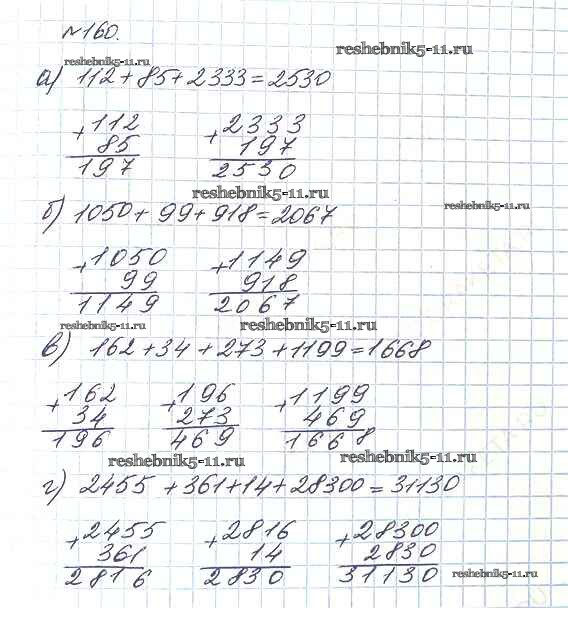 №160.
reshebnik5-11.ru
reshebnik5-11.ru
а) 112+85+2333=2530
+112 +2333
85 197
197 2530
reshebnik5-11.ru
reshebnik5-11.ru
б) 1050+99+918=2067
+1050 +1149
99 918
1149 2067
reshebnik5-11.ru
reshebnik5-11.ru
в) 162+34+273+1199=1668
+162 +196 +1199
34 273 469
196 469 1668
reshebnik5-11.ru
reshebnik5-11.ru
г) 2455+361+14+28300=31130
+2455 +2816 +28300
361 14 2830
2816 2830 31130
reshebnik5-11.ru